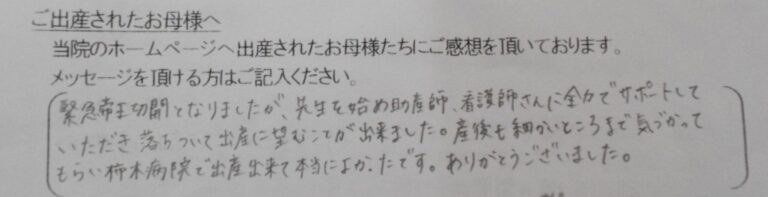 ご出産されたお母様へ
当院のホームページへ出産されたお母様たちにご感想を頂いております。
メッセージを頂ける方はご記入ください。
緊急帝王切開となりましたが、先生を始め助産師、看護師さんに全力でサポートして
いただき落ちついて出産に望むことが出来ました。産後も細かいところまで気づかって
もらい柿木病院で出産出来て本当によかったです。ありがとうございました。